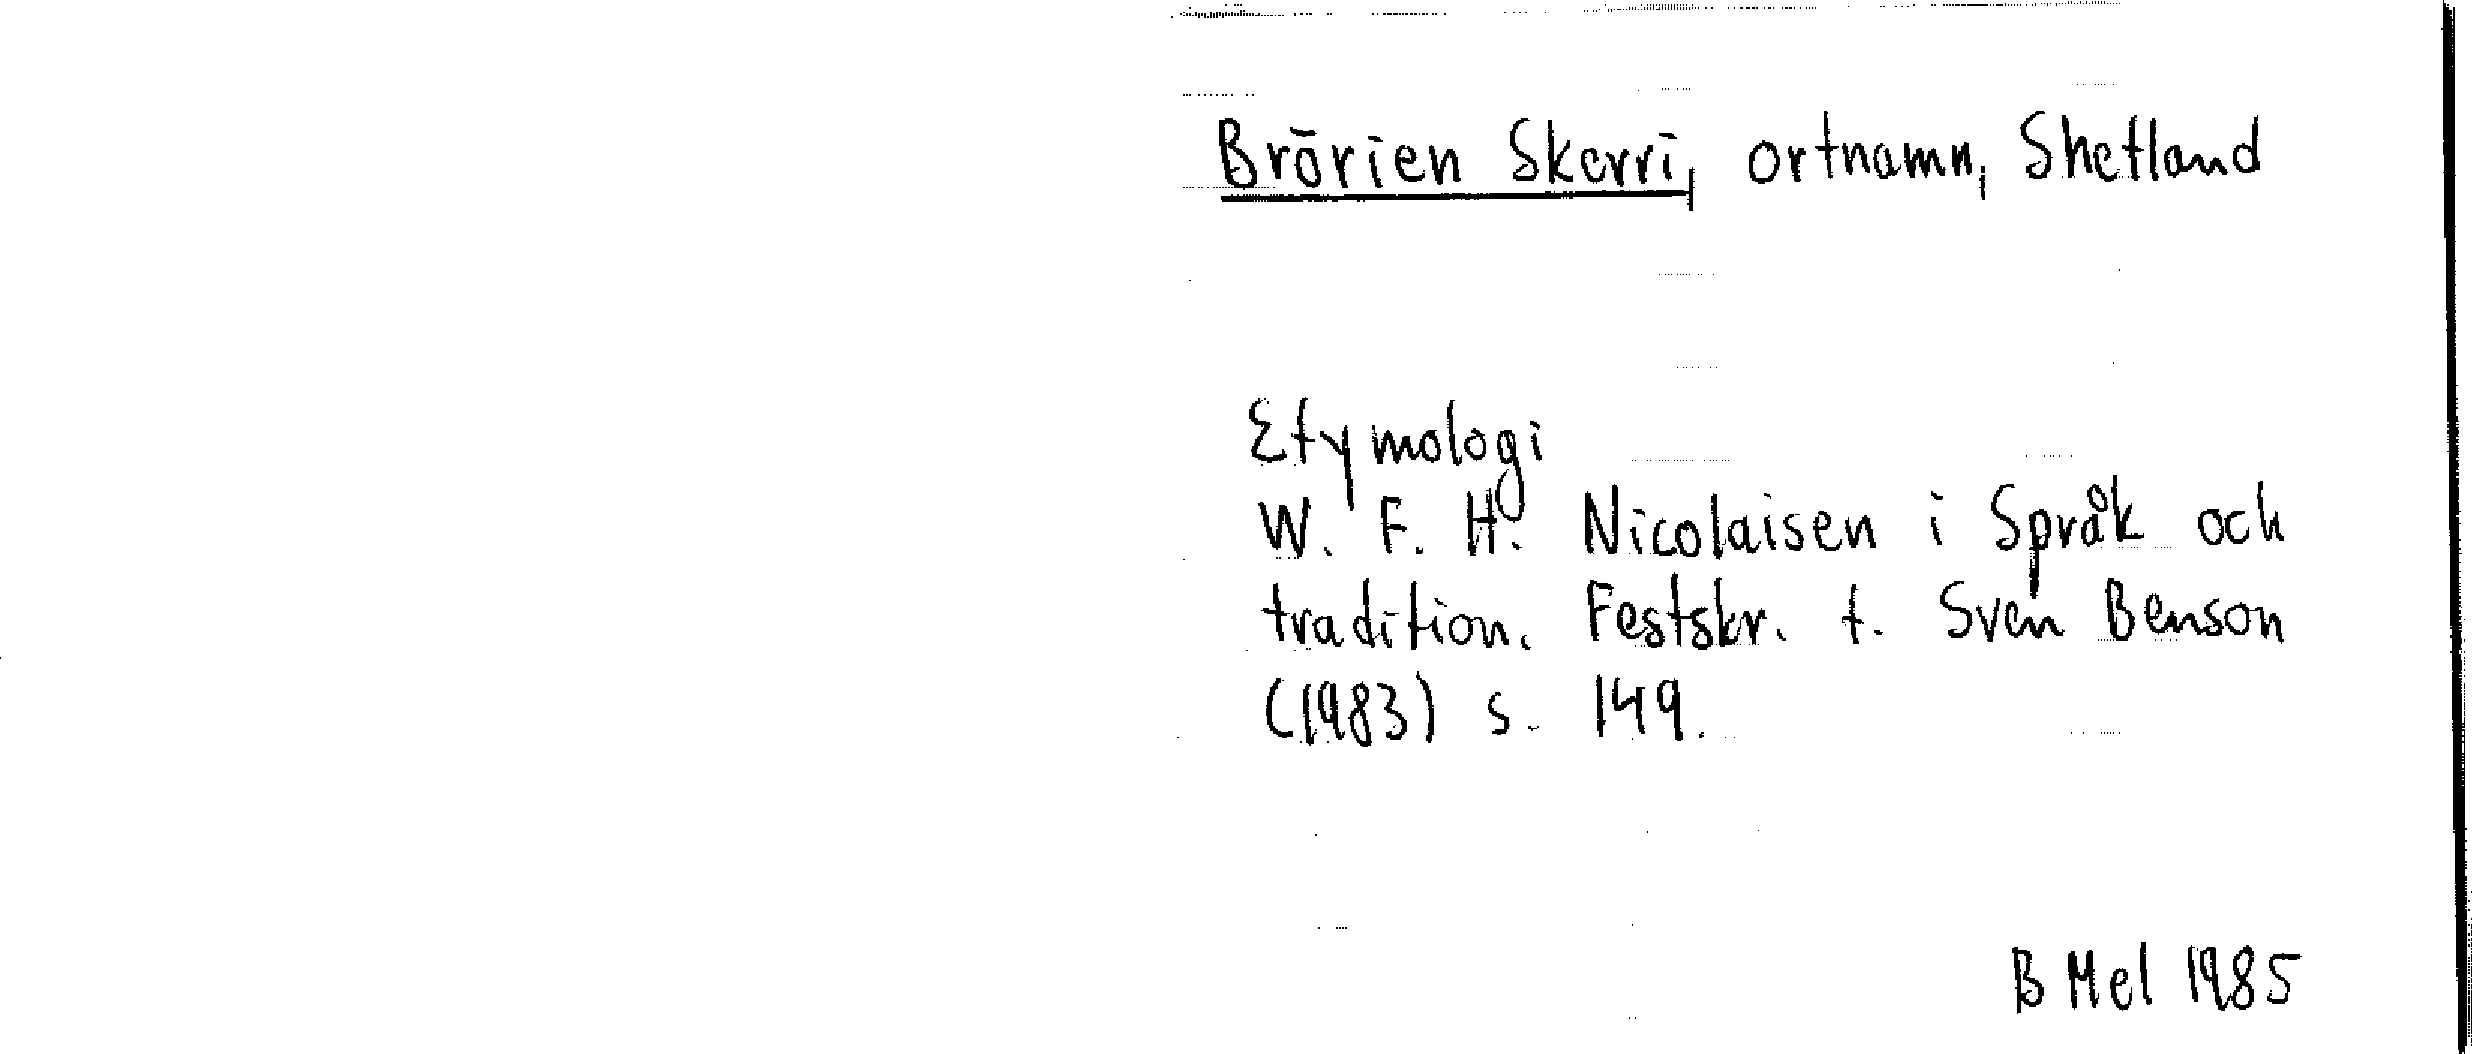 Brōrien Skerri, ortnamn, Shetland
Etymologi
W. F. H. Nicolaisen i Språk och
tradition. Festskr. t. Sven Benson
(1983) s. 149.
B Mel 1985